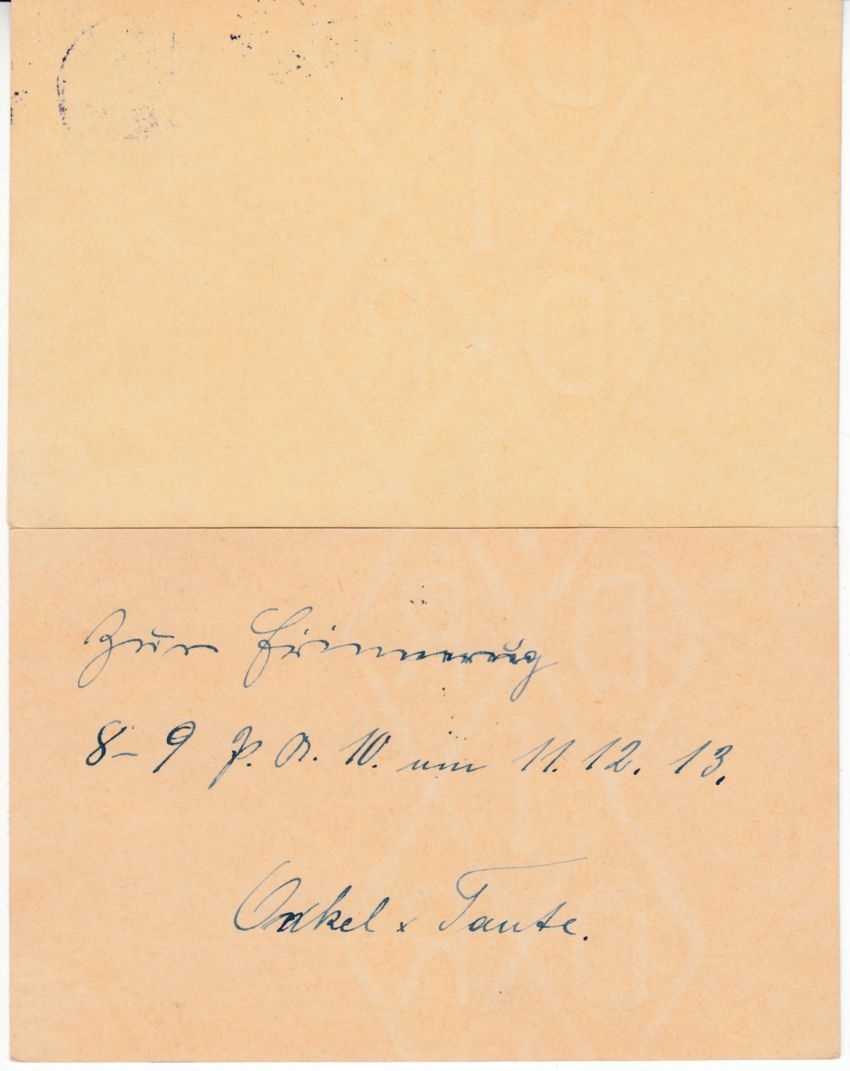 Zur Erinnerug
8–9 P. A. 10. um 11. 12. 13.
Onkel x Tante.